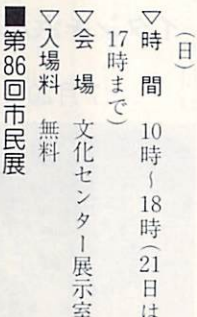 (日)
▽時　間　10時～18時(21日は
17時まで)
▽会　場　文化センター展示室
▽入場料　無料
■第86回市民展